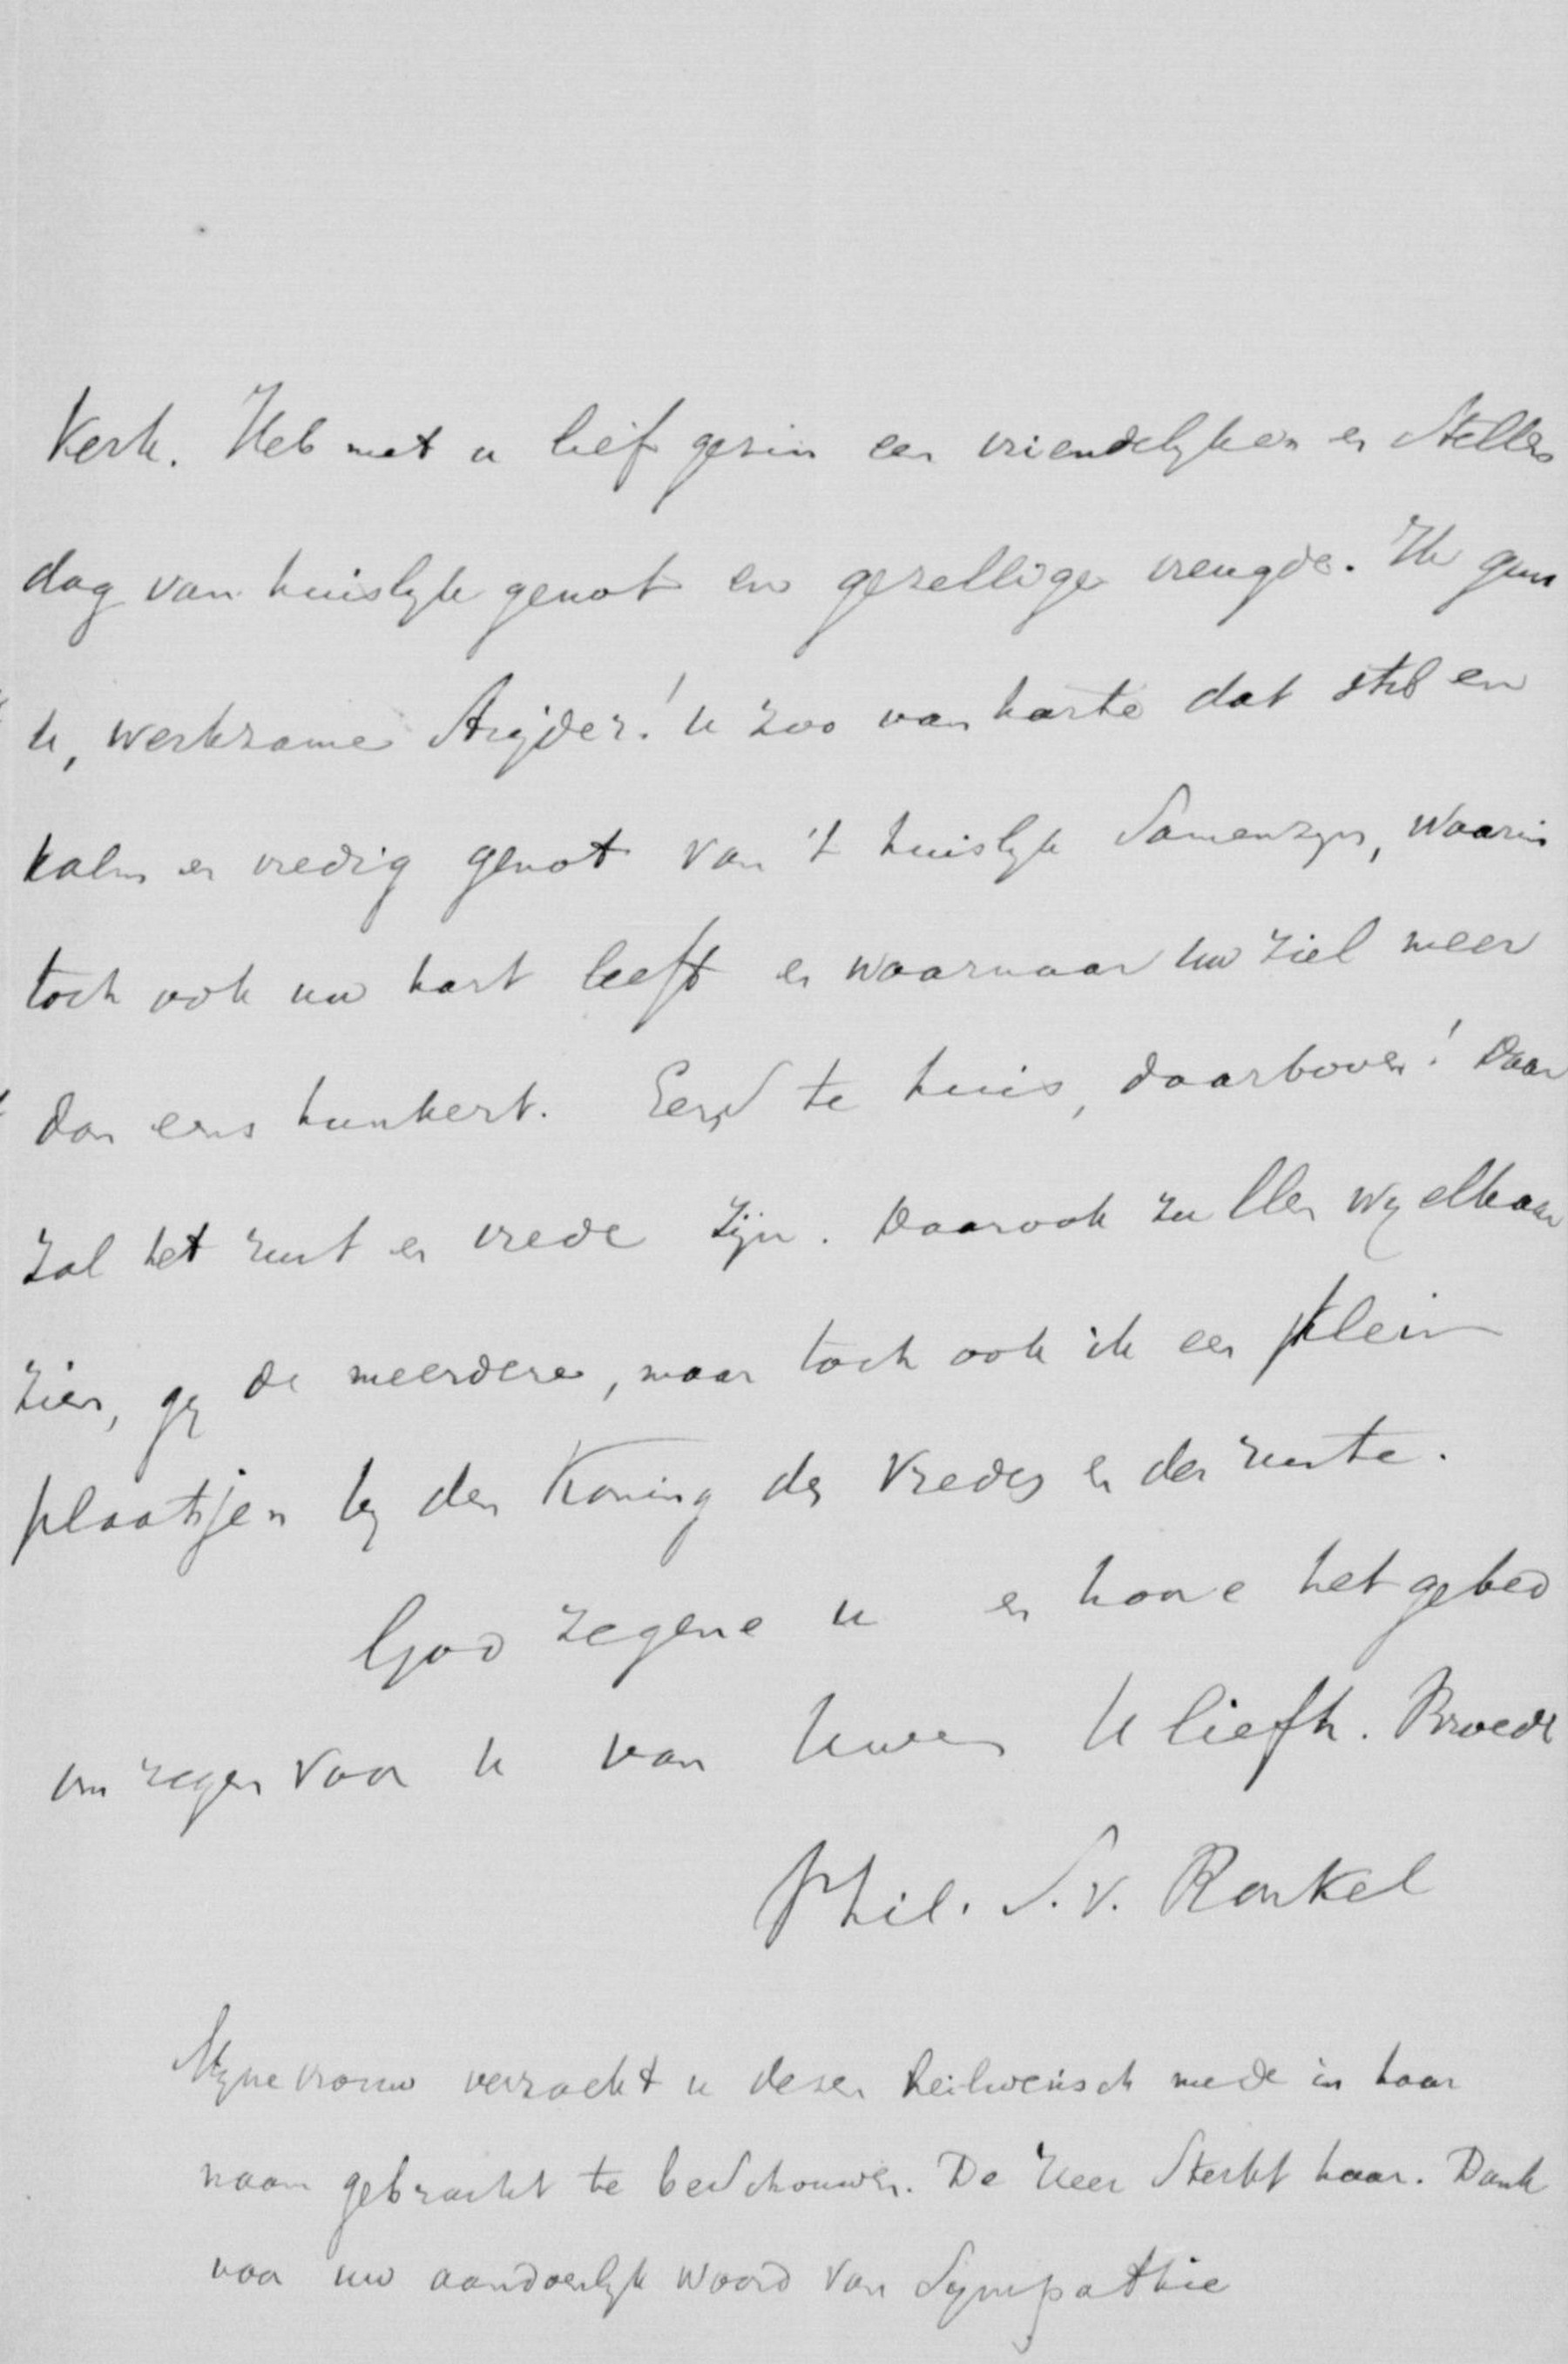 Kerk. Heb met u lief gezin een vriendelyken en stillen
dag van huislyk genot en gezellige vreugde. Ik gun
u, werkzame strijder! u zoo van harte dat stil en
kalm en vredig genot van 't huislyk samenzyn, waarin
toch ook uw hart leeft en waarnaar uw ziel meer
dan eens hunkert. Eens te huis, daarboven! Daar
zal het rust en vrede zijn. Daar ook zullen wy elkaar
zien, gy de meerdere, maar toch ook ik een klein
plaatsjen by den Koning des Vredes en der ruste.
God zegene u en hoore het gebed
om zegen voor u van Uwen U liefh. Broeder
Phil. S. v. Ronkel
Myne vrouw verzoekt u dezen heilwensch mede in haar
naam gebracht te beschouwen. De Heer sterkt haar. Dank
voor uw aandoenlyk woord van sympathie